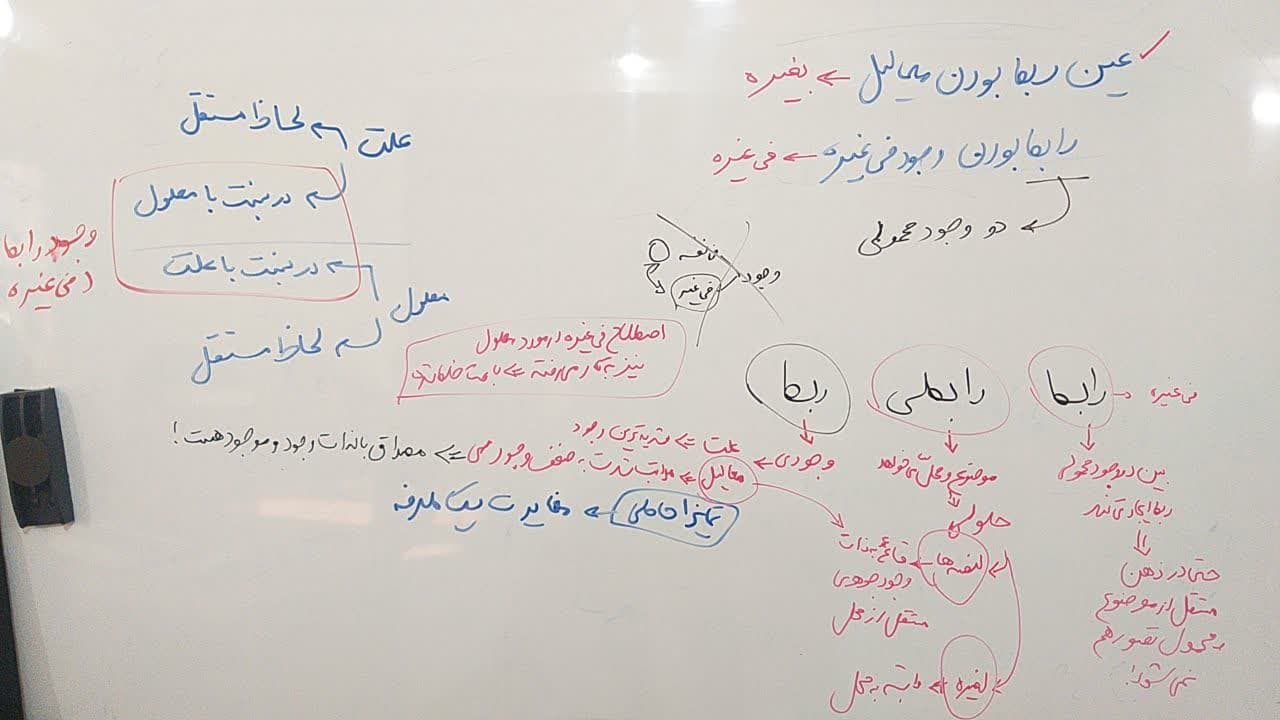 عین ربط بودن معالیل ← بغیره
رابط بودن وجود فی غیره ← فی غیره
دو وجود محمولی
علت
لحاظ مستقل
در نسبت با معلول
در نسبت با علت
معلول
لحاظ مستقل
وجود رابط
(فی غیره
وجود
فی نفسه
فی غیره
اصطلاح فی غیره در مورد معلول
نیز به کار می‌رفته ← باعث خلط
فی غیره
رابط
رابطی
ربط
بین دو وجود محمولی
ربط ایجاد می‌کند
حتی در ذهن
مستقل از موضوع
و محمول تصور هم
نمی‌شود!
موضوع و محلّ می‌خواهد
حلولی
لنفسه ها ← قائم بذات
وجود جوهری
مستقل از محل
لغیره ← وابسته به محل
وجودی
علت ← شدیدترین وجود
معالیل ← مراتب شدت به ضعف وجود می ← مصداق بالذات وجود و موجود هست!
تمایز احاطی ← مغایرت یک طرفه